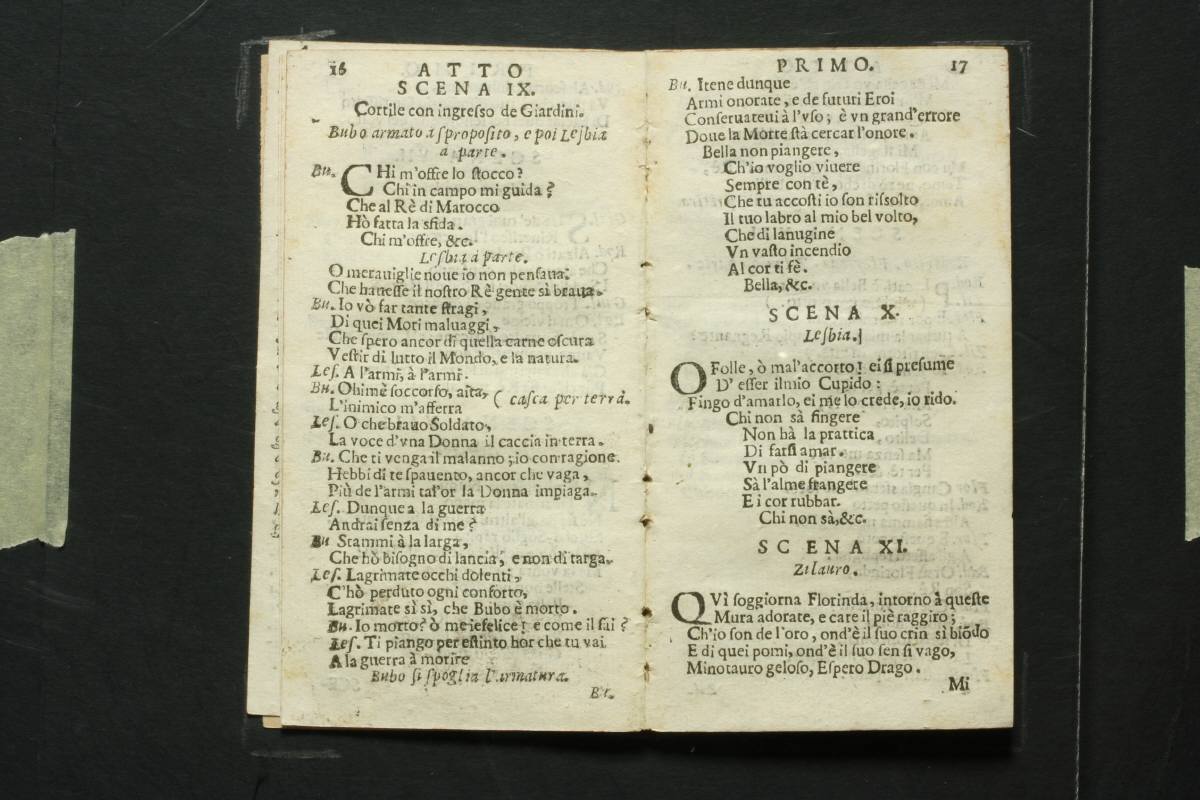 16 ATTO
SCENA IX.
Cortile con ingresso de Giardini.
Bubo armato a sproposito, e poi Lesbia
a parte.
Bu. CHi m'offre lo stocco?
Chi in campo mi guida?
Che al Rè di Marocco
Hò fatta la sfida.
Chi m'offre, &c.
Lesbia à parte.
O merauiglie noue io non pensaua:
Che hauesse il nostro Rè gente sì braua.
Bu. Io vò far tante stragi,
Di quei Mori maluaggi,
Che spero ancor di quella carne oscura
Vestir di lutto il Mondo, e la natura.
Les. A l'armi, à l'armi.
Bu. Ohimè soccorso, aita, ( casca per terra.
L'inimico m'afferra
Les. O che brauo Soldato,
La voce d'vna Donna il caccia in terra.
Bu. Che ti venga il malanno; io con ragione.
Hebbi di te spauento, ancor che vaga,
Più de l'armi tal'or la Donna impiaga.
Les. Dunque a la guerra
Andrai senza di me?
Bu Stammi à la larga,
Che hò bisogno di lancia, e non di targa.
Les. Lagrimate occhi dolenti,
C'hò perduto ogni conforto,
Lagrimate sì sì, che Bubo è morto.
Bu. Io morto? ò me iefelice! e come il sai?
Les. Ti piango per estinto hor che tu vai
A la guerra à morire
Bubo si spoglia l'armatura.
Bu.
PRIMO. 17
Bu. Itene dunque
Armi onorate, e de futuri Eroi
Conseruateui à l'vso; è vn grand'errore
Doue la Morte stà cercar l'onore.
Bella non piangere,
Ch'io voglio viuere
Sempre con tè,
Che tu accosti io son rissolto
Il tuo labro al mio bel volto,
Che di lanugine
Vn vasto incendio
Al cor ti fè.
Bella, &c.
SCENA X.
Lesbia.
O Folle, ò mal'accorto! ei si presume
D'esser il mio Cupido:
Fingo d'amarlo, ei me lo crede, io rido.
Chi non sà fingere
Non hà la prattica
Di farsi amar.
Vn pò di piangere
Sà l'alme frangere
E i cor rubbar.
Chi non sà, &c.
SCENA XI.
Zilauro.
QVì soggiorna Florinda, intorno à queste
Mura adorate, e care il piè raggiro;
Ch'io son de l'oro, ond'è il suo crin sì biõdo
E di quei pomi, ond'è il suo sen si vago,
Minotauro geloso, Espero Drago.
Mi